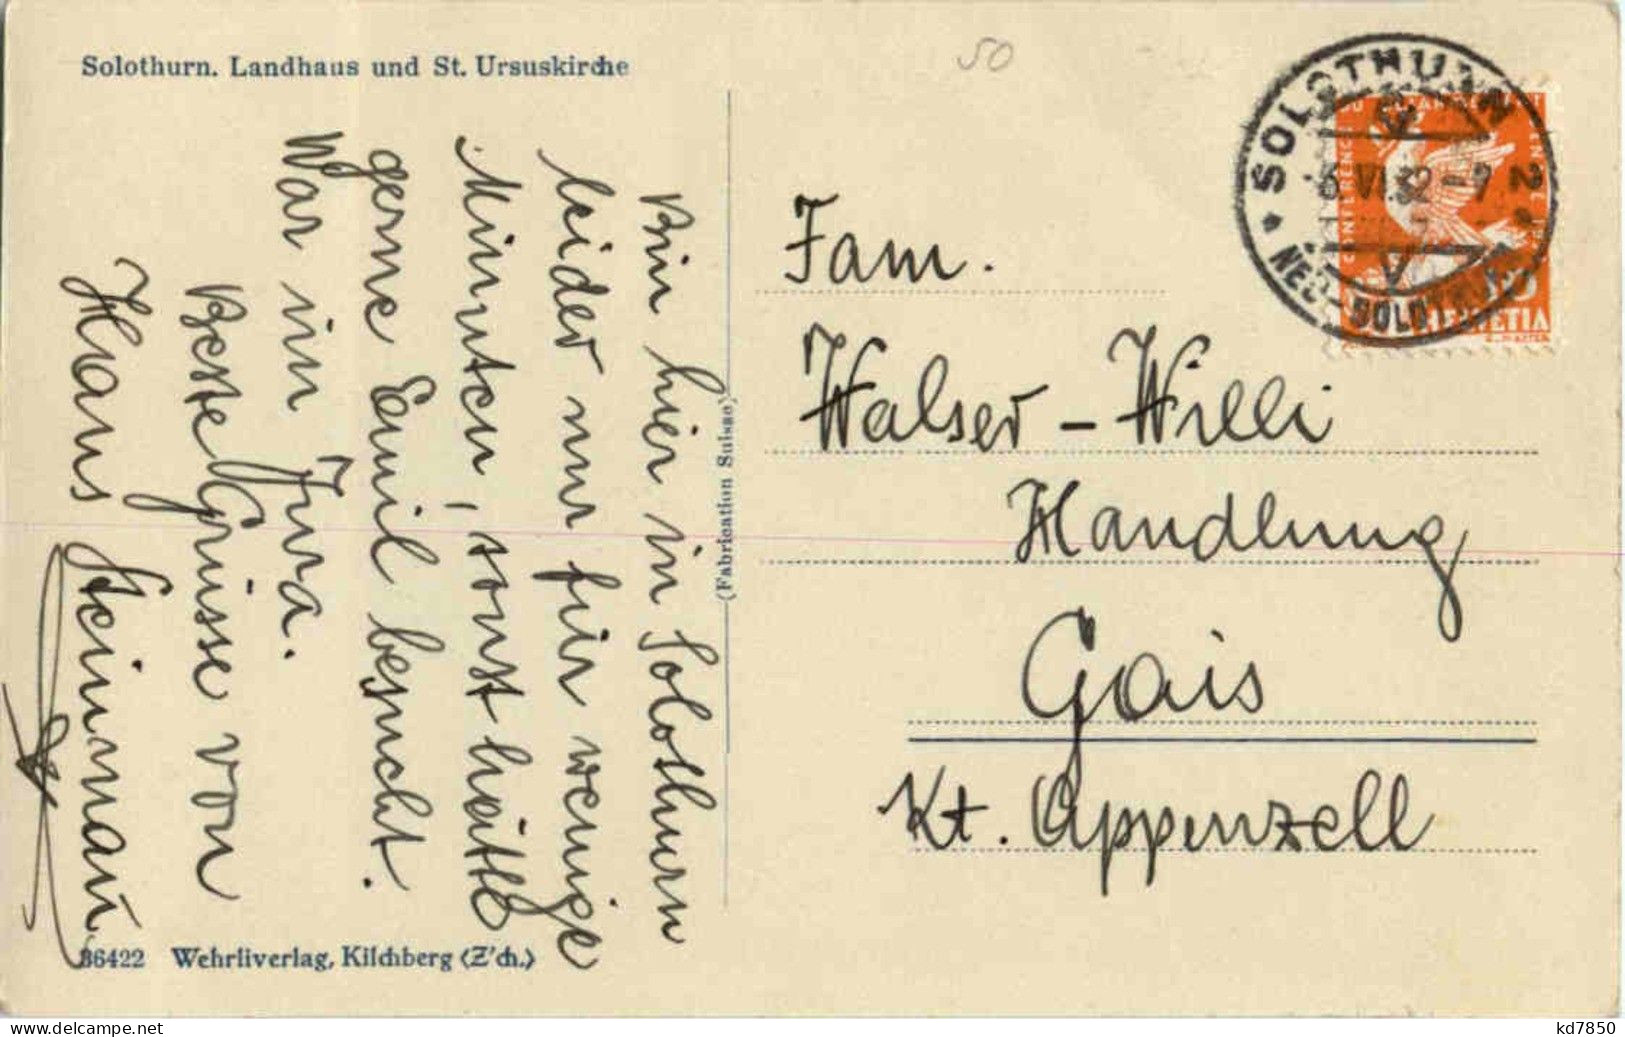 Solothurn. Landhaus und St. Ursuskirche
50
Bin hier in Solothurn
leider nur für wenige
Minuten, sonst hätte
gerne Emil besucht.
War im Jura.
Beste Grüsse von
Hans Steinmann
36422 Wehrliverlag, Kilchberg (Z'ch.)
(Fabrication Suisse)
SOLOTHURN 2
6.VI.32-7
NEU-SOLOTHURN
CONFERENCE
HELVETIA
Fam.
Walser-Willi
Handlung
Gais
Kt. Appenzell
kd7850
www.delcampe.net